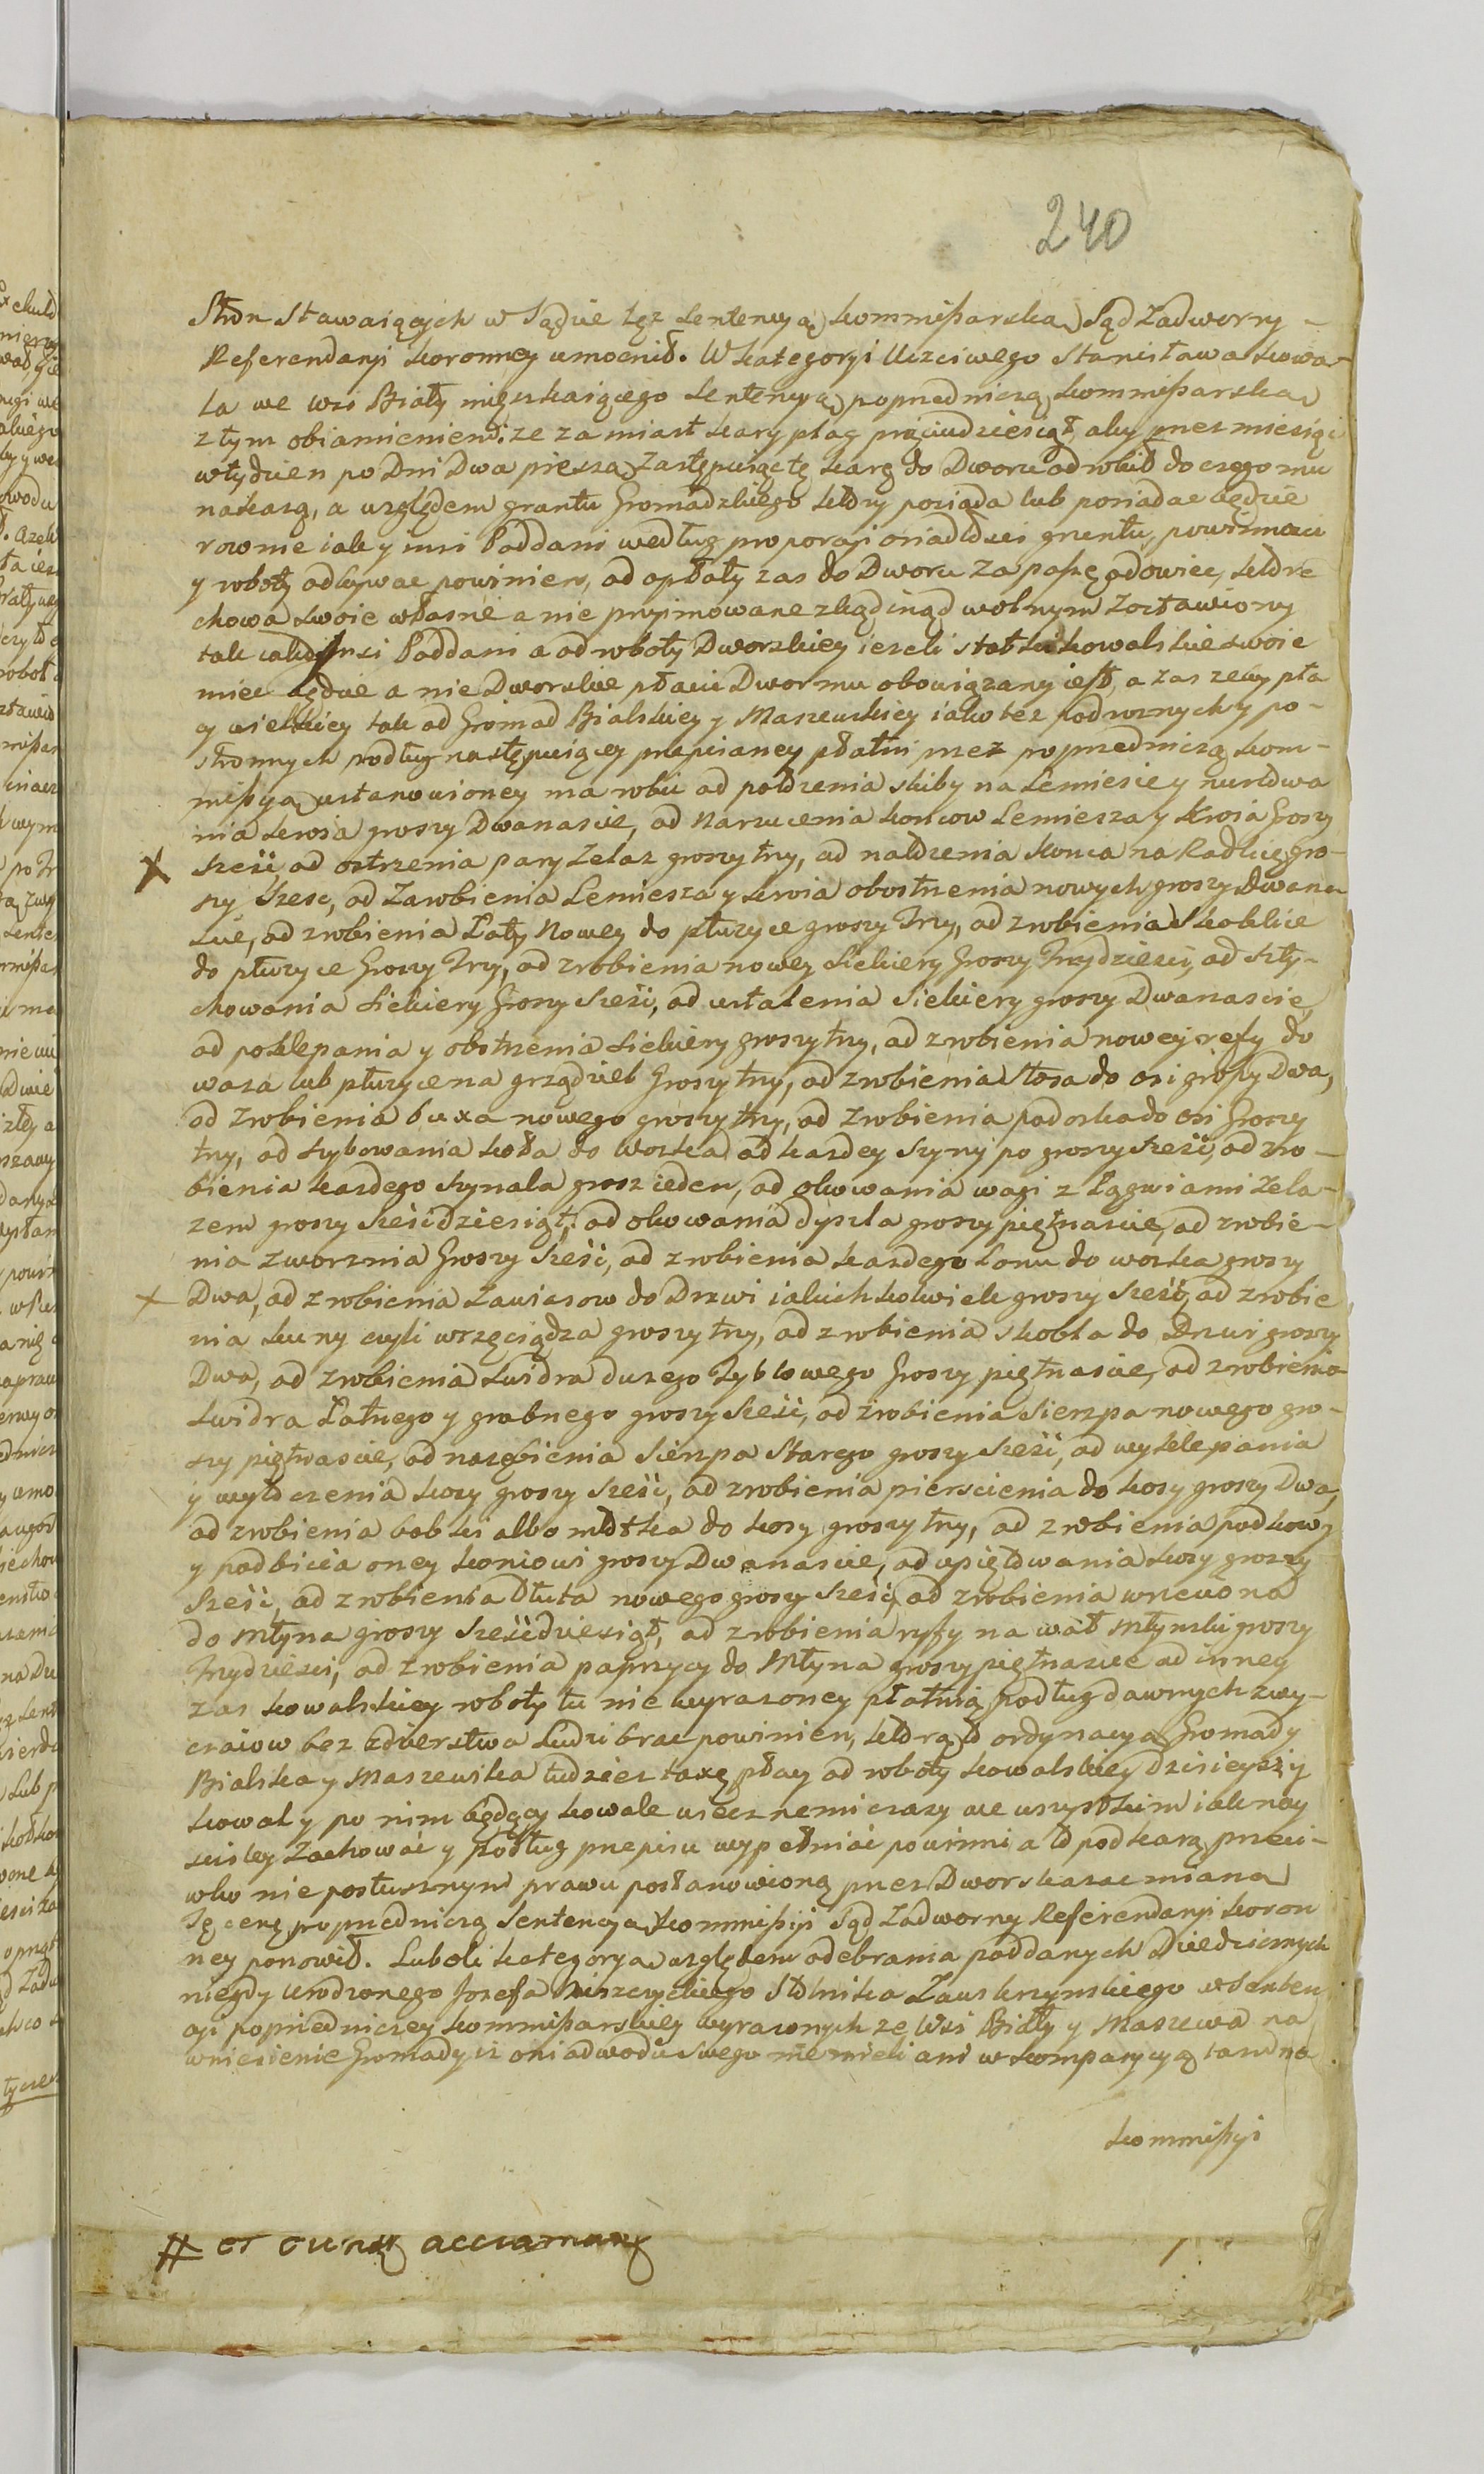 240
Stron Stawaiących w Sądzie też Sentencyą Kommissarską Sąd Zadworny
Referendaryi Koronney umocnił. W Kategoryi Uczciwego Stanisława Kowa-
la we wsi Biały mięszkaiącego Sentencyą poprzedniczą Kommissarską
z tym obiaśnieniem, że zamiast kary plag pięciudziesiąt, aby przez miesiąc
w tydzień po Dni Dwa pieszą zastępuiącę tę karę do Dworu odrobił do czego mu
nakazą, a względem gruntu Gromadzkiego ktory posiada lub posiadac będzie
rownie iak y insi Poddani według proporcyi osiadłosci gruntu, powinnosci
y roboty odbywac powinien, od opłaty zas do Dworu za paszę odowiec, ktore
chowa swoie własne a nie przyimowane zkądinąd wolnym zostawiony
tak iako y insi Poddani a od roboty Dworskiey iezeli statki kowalskie swoie
miec będzie a nie Dworskie płacic Dwor mu obowiązany iest, a zas zeby pła
cy wielkiey tak od Gromad Bialskiey y Maszewskiey iako tez podroznych y po-
stronnych podług następuiącey przepisaney płatni przez poprzedniczą Kom-
missyą ustanowioney ma robic od połozenia skiby na Lemiesie y nurtowa
nia kroia groszy Dwanascie, od Narzucenia koncow Lemiesza y kroia Groszy
X szesć, od ostrzenia pary zelaz groszy trzy, od nałozenia konca na Radlicę gro-
szy szesc, od Zarobienia Lemiesza y kroia obostrzenia nowych groszy Dwana-
scie, od zrobienia Łaty Nowey do płuzyce groszy Trzy, od zrobienia Skoblice
do płuzyce Groszy Trzy, od zrobienia nowey Siekiery Groszy Trzydziesci, od szty-
chowania Siekiery Groszy szesć, od ustalenia Siekiery groszy Dwanascie,
od poklepania y obostrzenia Siekiery groszy trzy, od zrobienia nowey refy do
woza lub płuzyce na grządziel Groszy trzy, od zrobienia Łosa do osi groszy Dwa,
od zrobienia buxa nowego groszy trzy, od zrobienia podoska do osi Groszy
trzy, od szybowania koła do Wozka od kazdey szyny po groszy szesć, od zro-
bienia kazdego szynala grosz ieden, od okowania wagi z Łągwiami zela-
zem groszy szescdziesiąt, od okowania dyszla groszy piętnascie, od zrobie-
nia zworznia Groszy szesć, od zrobienia kazdego Lonu do wozka groszy
X Dwa, od zrobienia Zawiasow do Drzwi iakichkolwiek groszy szesć, od zrobie
nia kuny czyli wrzęciądza groszy trzy, od zrobienia skobla do Drzwi groszy
Dwa, od zrobienia swidra duzego Zyblowego Groszy piętnascie, od zrobienia
swidra Łatnego y grabnego groszy szesć, od zrobienia sierzpa nowego gro-
szy piętnascie, od nazębienia sierzpa Starego groszy szesć, od wyklepania
y wytoczenia kosy groszy szesć, od zrobienia pierscienia do kosy groszy Dwa,
od zrobienia babki albo młotka do kosy groszy trzy, od zrobienia podkowy
y podbicia oney koniowi groszy Dwanascie, od upiętowania kosy groszy
szesć, od zrobienia Dłuta nowego groszy szesć, od zrobienia wrzeciona
do Młyna groszy szescdziesiąt, od zrobienia ryfy na wał Młynski groszy
Trzydziesci, od zrobienia paprzycy do Młyna groszy piętnascie od inney
zas kowalskiey roboty tu nie wyrazoney płatnią podług dawnych zwy-
czaiow bez zdzierstwa Ludzi brac powinien, ktorą to ordynacyą Gromady
Bialska y Maszewska tudziez taxę płacy od roboty kowalskiey dzisieyszy
kowal y po nim będący kowale wiecznemi czasy we wszystkim iak nay
scisley Zachować y podług przepisu wypełniać powinni a to pod karą przeci-
wko nieposłusznym prawu postanowioną przez Dwor skazac mianą
Tę cenę poprzedniczą Sentencyą Kommissyi Sąd Zadworny Referendaryi Koron
ney ponowił. Luboli Kategorya względem odebrania poddanych Dziedzicznych
niegdy Urodzonego Jozefa Niszczyckiego Stolnika Zawskrzynskiego w Senten
cyi poprzedniczey Kommissarskiey wyrazonych ze Wsi Biały y Maszewa na
wniesienie Gromady iz oni odwodu swego nie mieli ani w komparycyą tandną
Kommissyi
# et